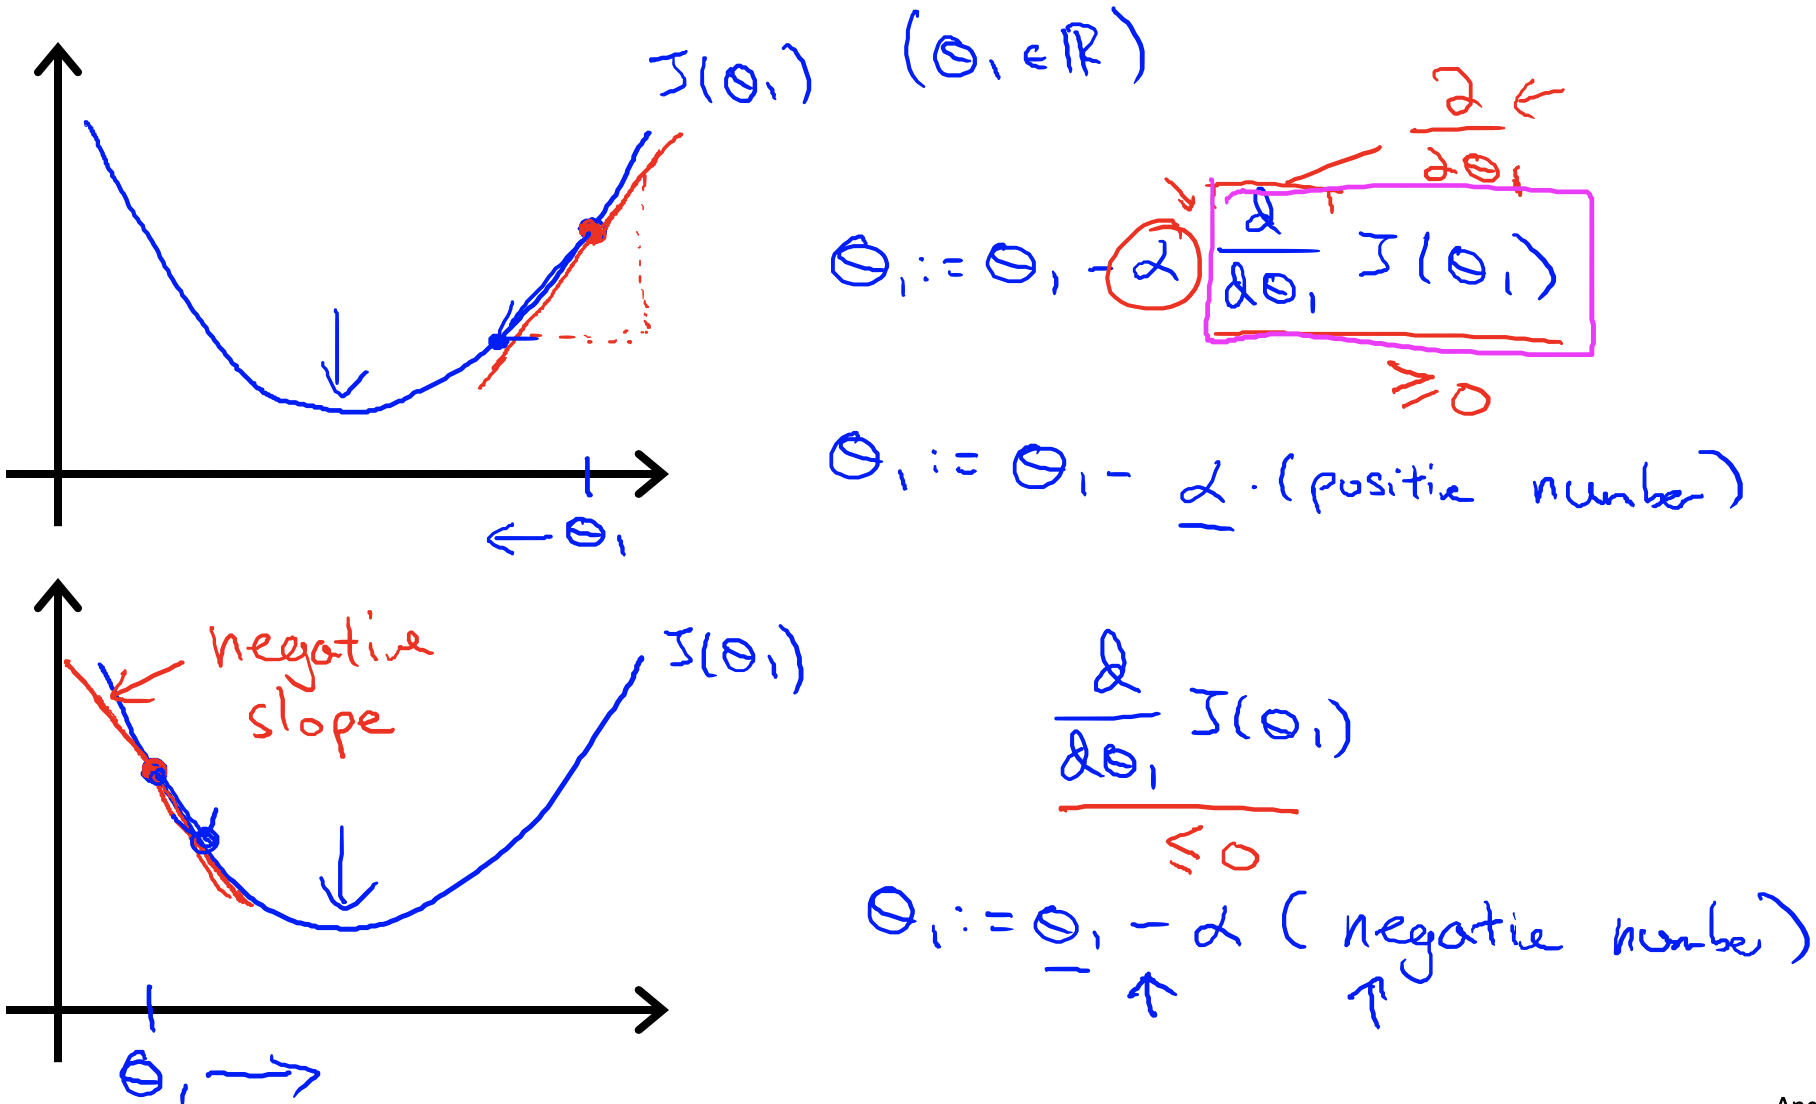 J(θ₁) (θ₁ ∈ ℝ)
∂/∂θ₁
θ₁ := θ₁ - α d/dθ₁ J(θ₁)
≥ 0
θ₁ := θ₁ - α · (positive number)
θ₁
negative slope
J(θ₁)
d/dθ₁ J(θ₁)
≤ 0
θ₁ := θ₁ - α (negative number)
θ₁